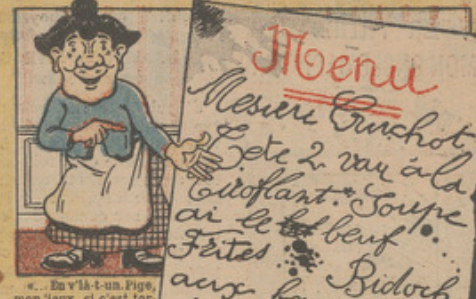 Menu
Mesieu Guichot,
Tete 2 vau à la
Ciroflant. Soupe
ai le beuf
Frites
Bidoch
aux
«... En v'là-t-un. Pige,
mon vieux, si c'est tor-